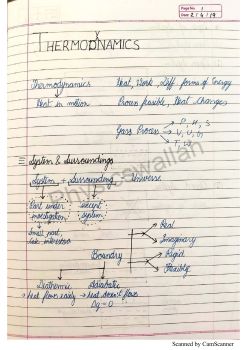 Page No. 1
Date 2/4/19
THERMODYNAMICS
Thermodynamics Heat, Work, Diff forms of Energy
Heat in motion Process possible, Heat Changes
Gases Process → P, H, S
→ V, U, G
→ T, W
System & Surroundings
System + Surrounding Universe
Part under except
investigation system
Small part,
Physicswallah
Boundry
Real
Imaginary
Rigid
Flexible
Diathermic Adiabatic
→ heat flow easily → heat doesn't flow
Δq = 0
Scanned by CamScanner